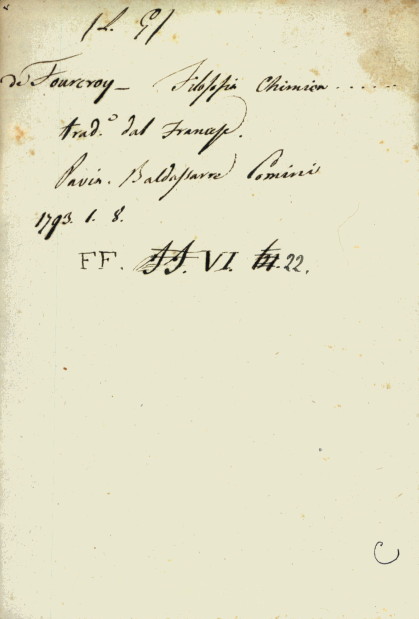 de Fourcroy — Filosofia Chimica ......
trad.º dal Francese.
Pavia. Baldassarre Comini
1793. 1. 8.
FF. VI. 22.
C